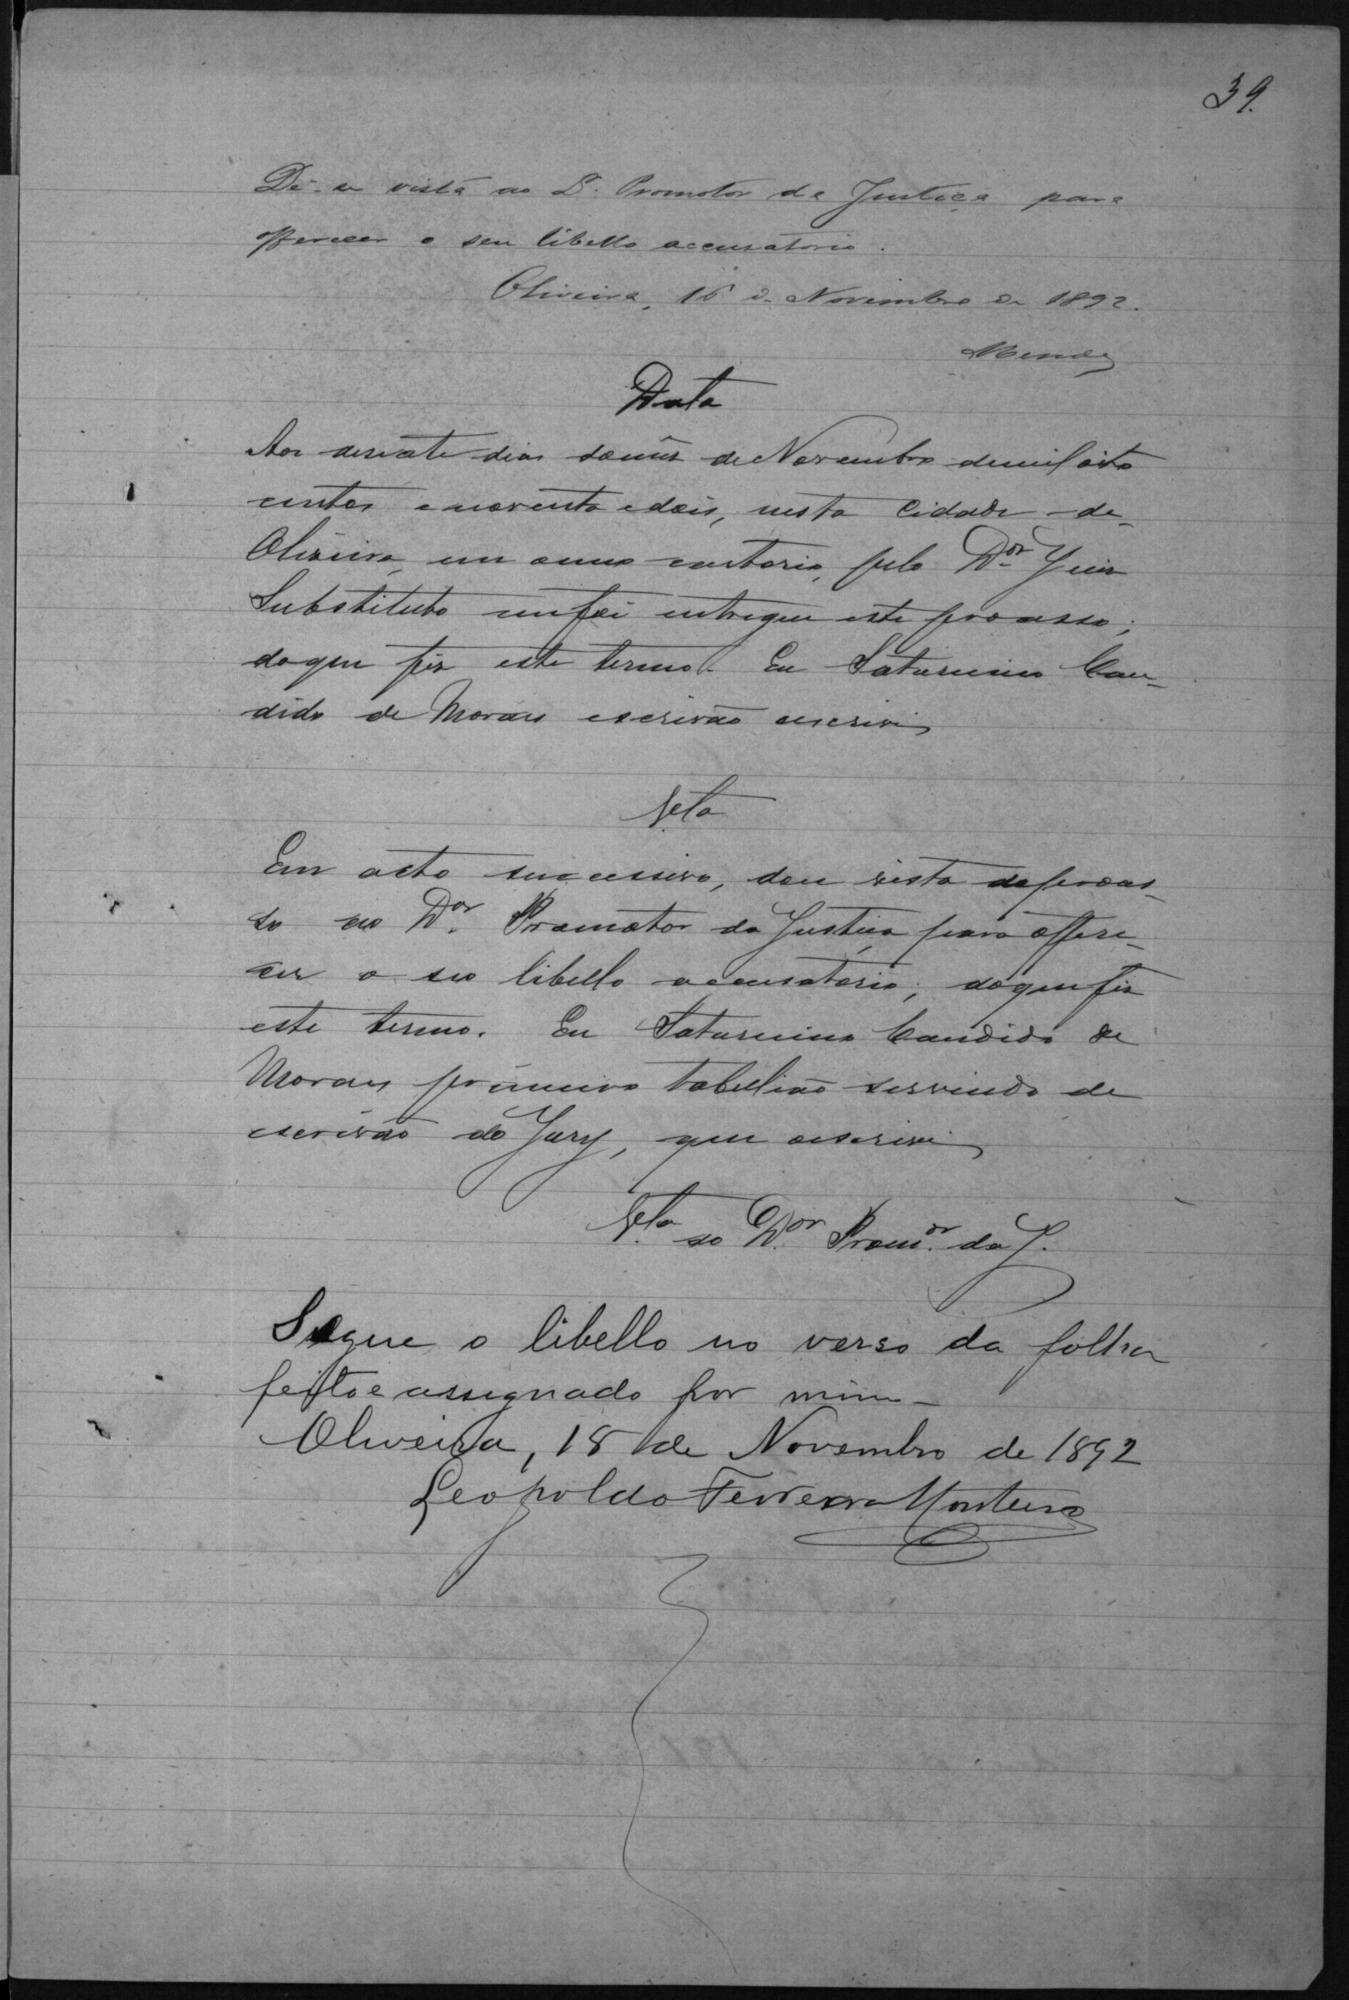 39.
Dê-se vista ao Dr. Promotor da Justiça para
offerecer o seu libello accusatorio.
Oliveira, 16 de Novembro de 1892.
Mendes
Data
Aos desesete dias do mês de Novembro de mil oito
centos e noventa e dois, nesta Cidade de
Oliveira, em meu cartorio, pelo Dor. Juiz
Substituto me foi entregue este processo;
do que fiz este termo. Eu Saturnino Can-
dido de Moraes escrivão escrevi
Vta
Em acto successivo, dou vista do proces-
so ao Dor. Promotor da Justiça para offere-
cer o seo libello accusatorio; do que fiz
este termo. Eu Saturnino Candido de
Moraes primeiro tabellião servindo de
escrivão do Jury, que escrevi
Vta ao Dor. Promor. da J.
Segue o libello no verso da folha
feito e assignado por mim -
Oliveira, 18 de Novembro de 1892
Leopoldo Ferreira Monteiro